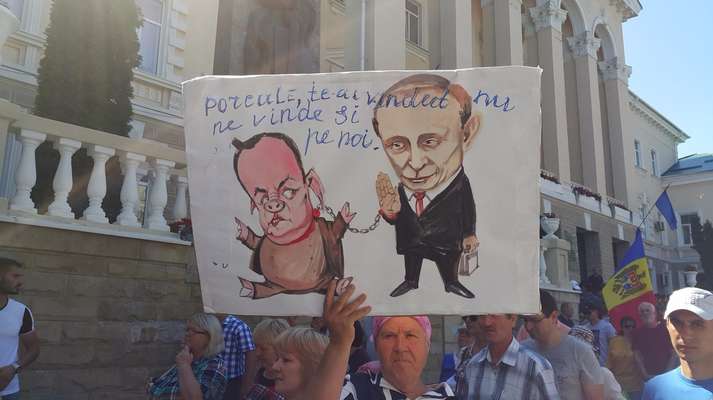 porcule, te-ai vîndut nu
ne vinde și
pe noi.